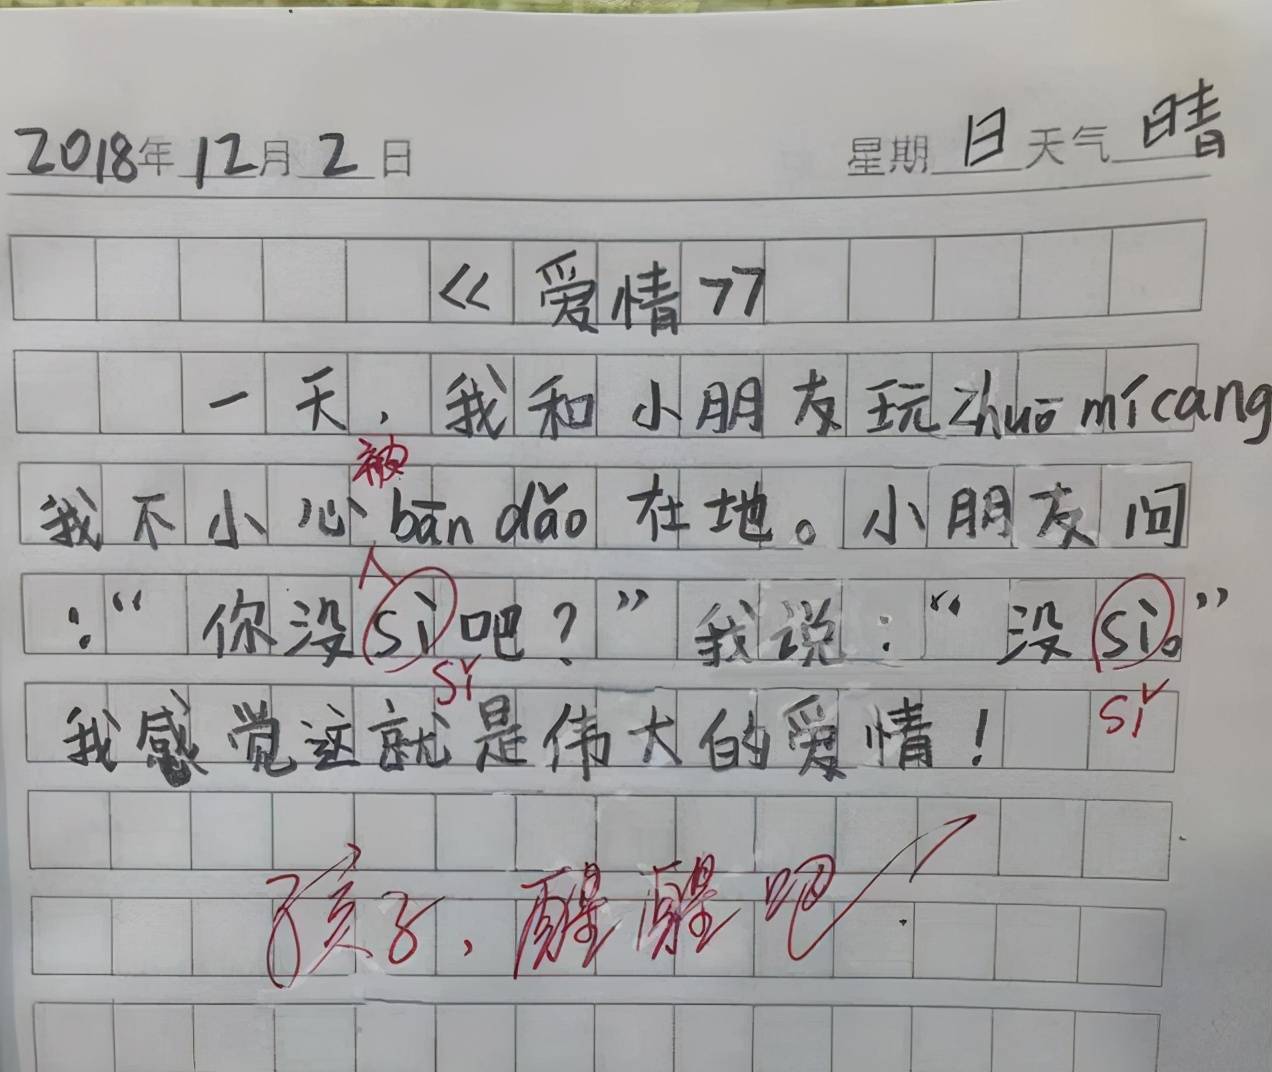 2018年12月2日 星期日天气晴
《爱情》
一天,我和小朋友玩zhuō mí cang
被
我不小心bān dǎo在地。小朋友问
:“你没sì吧?”我说:“没sì。”
sǐ sǐ
我感觉这就是伟大的爱情!
孩子,醒醒吧